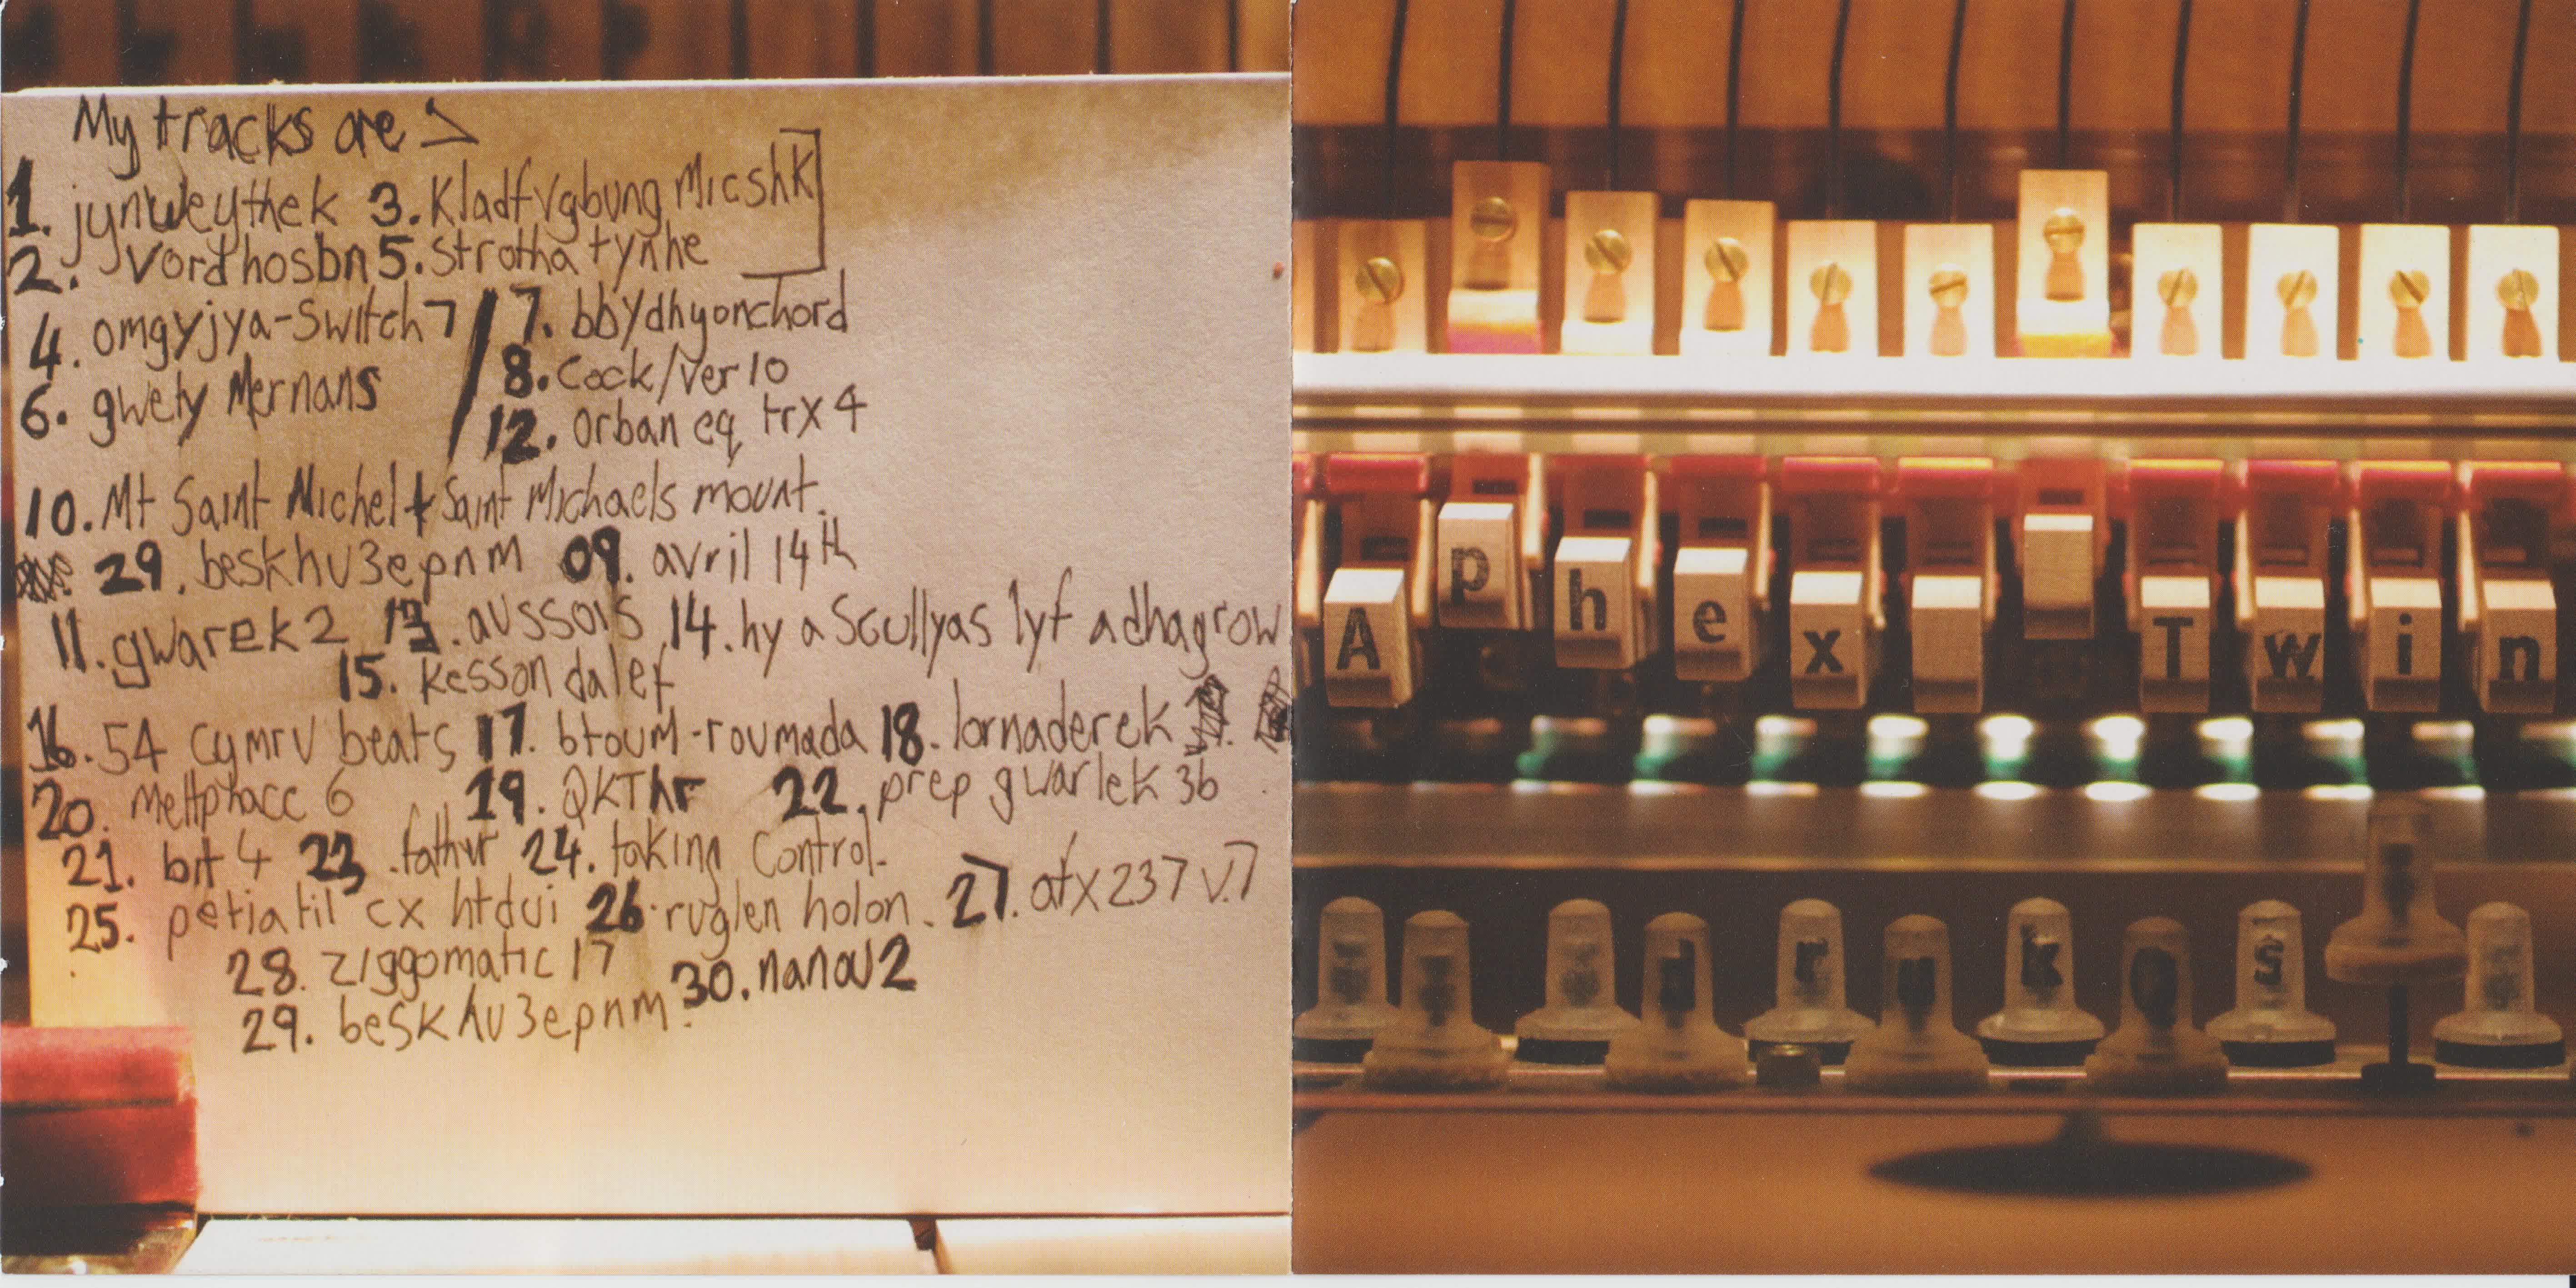 My tracks are >
1. jynweythek 3. Kladfvgbung Micshk
2. Vordhosbn 5. strotha tynhe
4. omgyjya-Switch 7 / 7. bbydhyonchord
8. Cock/ver 10
6. gwety Mernans
12. orban eq trx 4
10. Mt Saint Michel + Saint Michaels mount.
29. beskhu3epnm 09. avril 14th
11. gwarek 2 13. aussois 14. hy a Scullyas lyf adhagrow
15. kesson dalef
16. 54 cymru beats 17. btoum-roumada 18. lornaderek
20. Meltphace 6 19. QKThr 22. prep gwarlek 3b
21. bit 4 23. father 24. taking control.
25. petiatil cx htdui 26. ruglen holon. 27. afx 237 v.7
28. ziggomatic 17
29. beskhu3epnm. 30. nanou 2
Aphex Twin
d r u k Q s